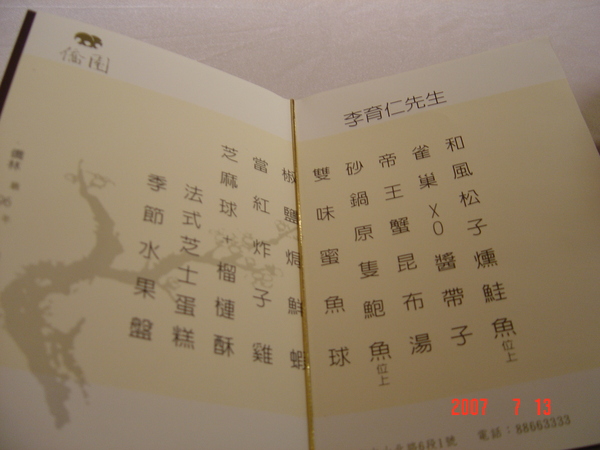 李育仁先生
和風松子燻鮭魚位上
雀巢XO醬帶子
帝王蟹昆布湯
砂鍋原隻鮑魚位上
雙味蜜魚球
椒鹽焗鮮蝦
當紅炸子雞
芝麻球+榴槤酥
法式芝士蛋糕
季節水果盤
路6段1號 電話：88663333
2007 7 13